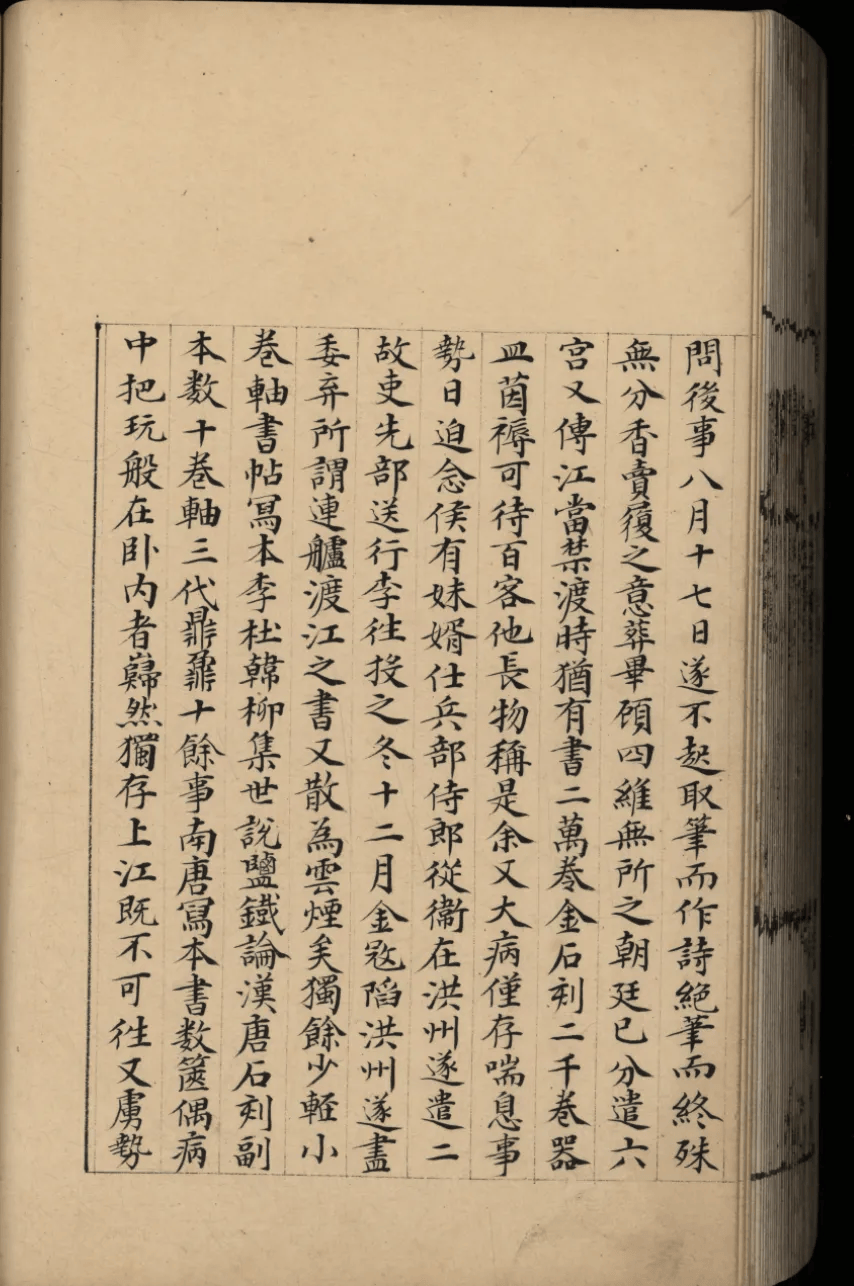 問後事八月十七日遂不起取筆而作詩絶筆而終殊
無分香賣履之意葬畢顧四維無所之朝廷已分遣六
宮又傳江當禁渡時猶有書二萬卷金石刻二千卷器
皿茵褥可待百客他長物稱是余又大病僅存喘息事
勢日迫念侯有妹婿仕兵部侍郎從衛在洪州遂遣二
故吏先部送行李徃投之冬十二月金寇陷洪州遂盡
委弃所謂連艫渡江之書又散為雲煙矣獨餘少輕小
卷軸書帖冩本李杜韓柳集世說鹽鐵論漢唐石刻副
本数十卷軸三代鼎鼐十餘事南唐冩本書数篋偶病
中把玩般在卧内者巋然獨存上江既不可徃又虜勢